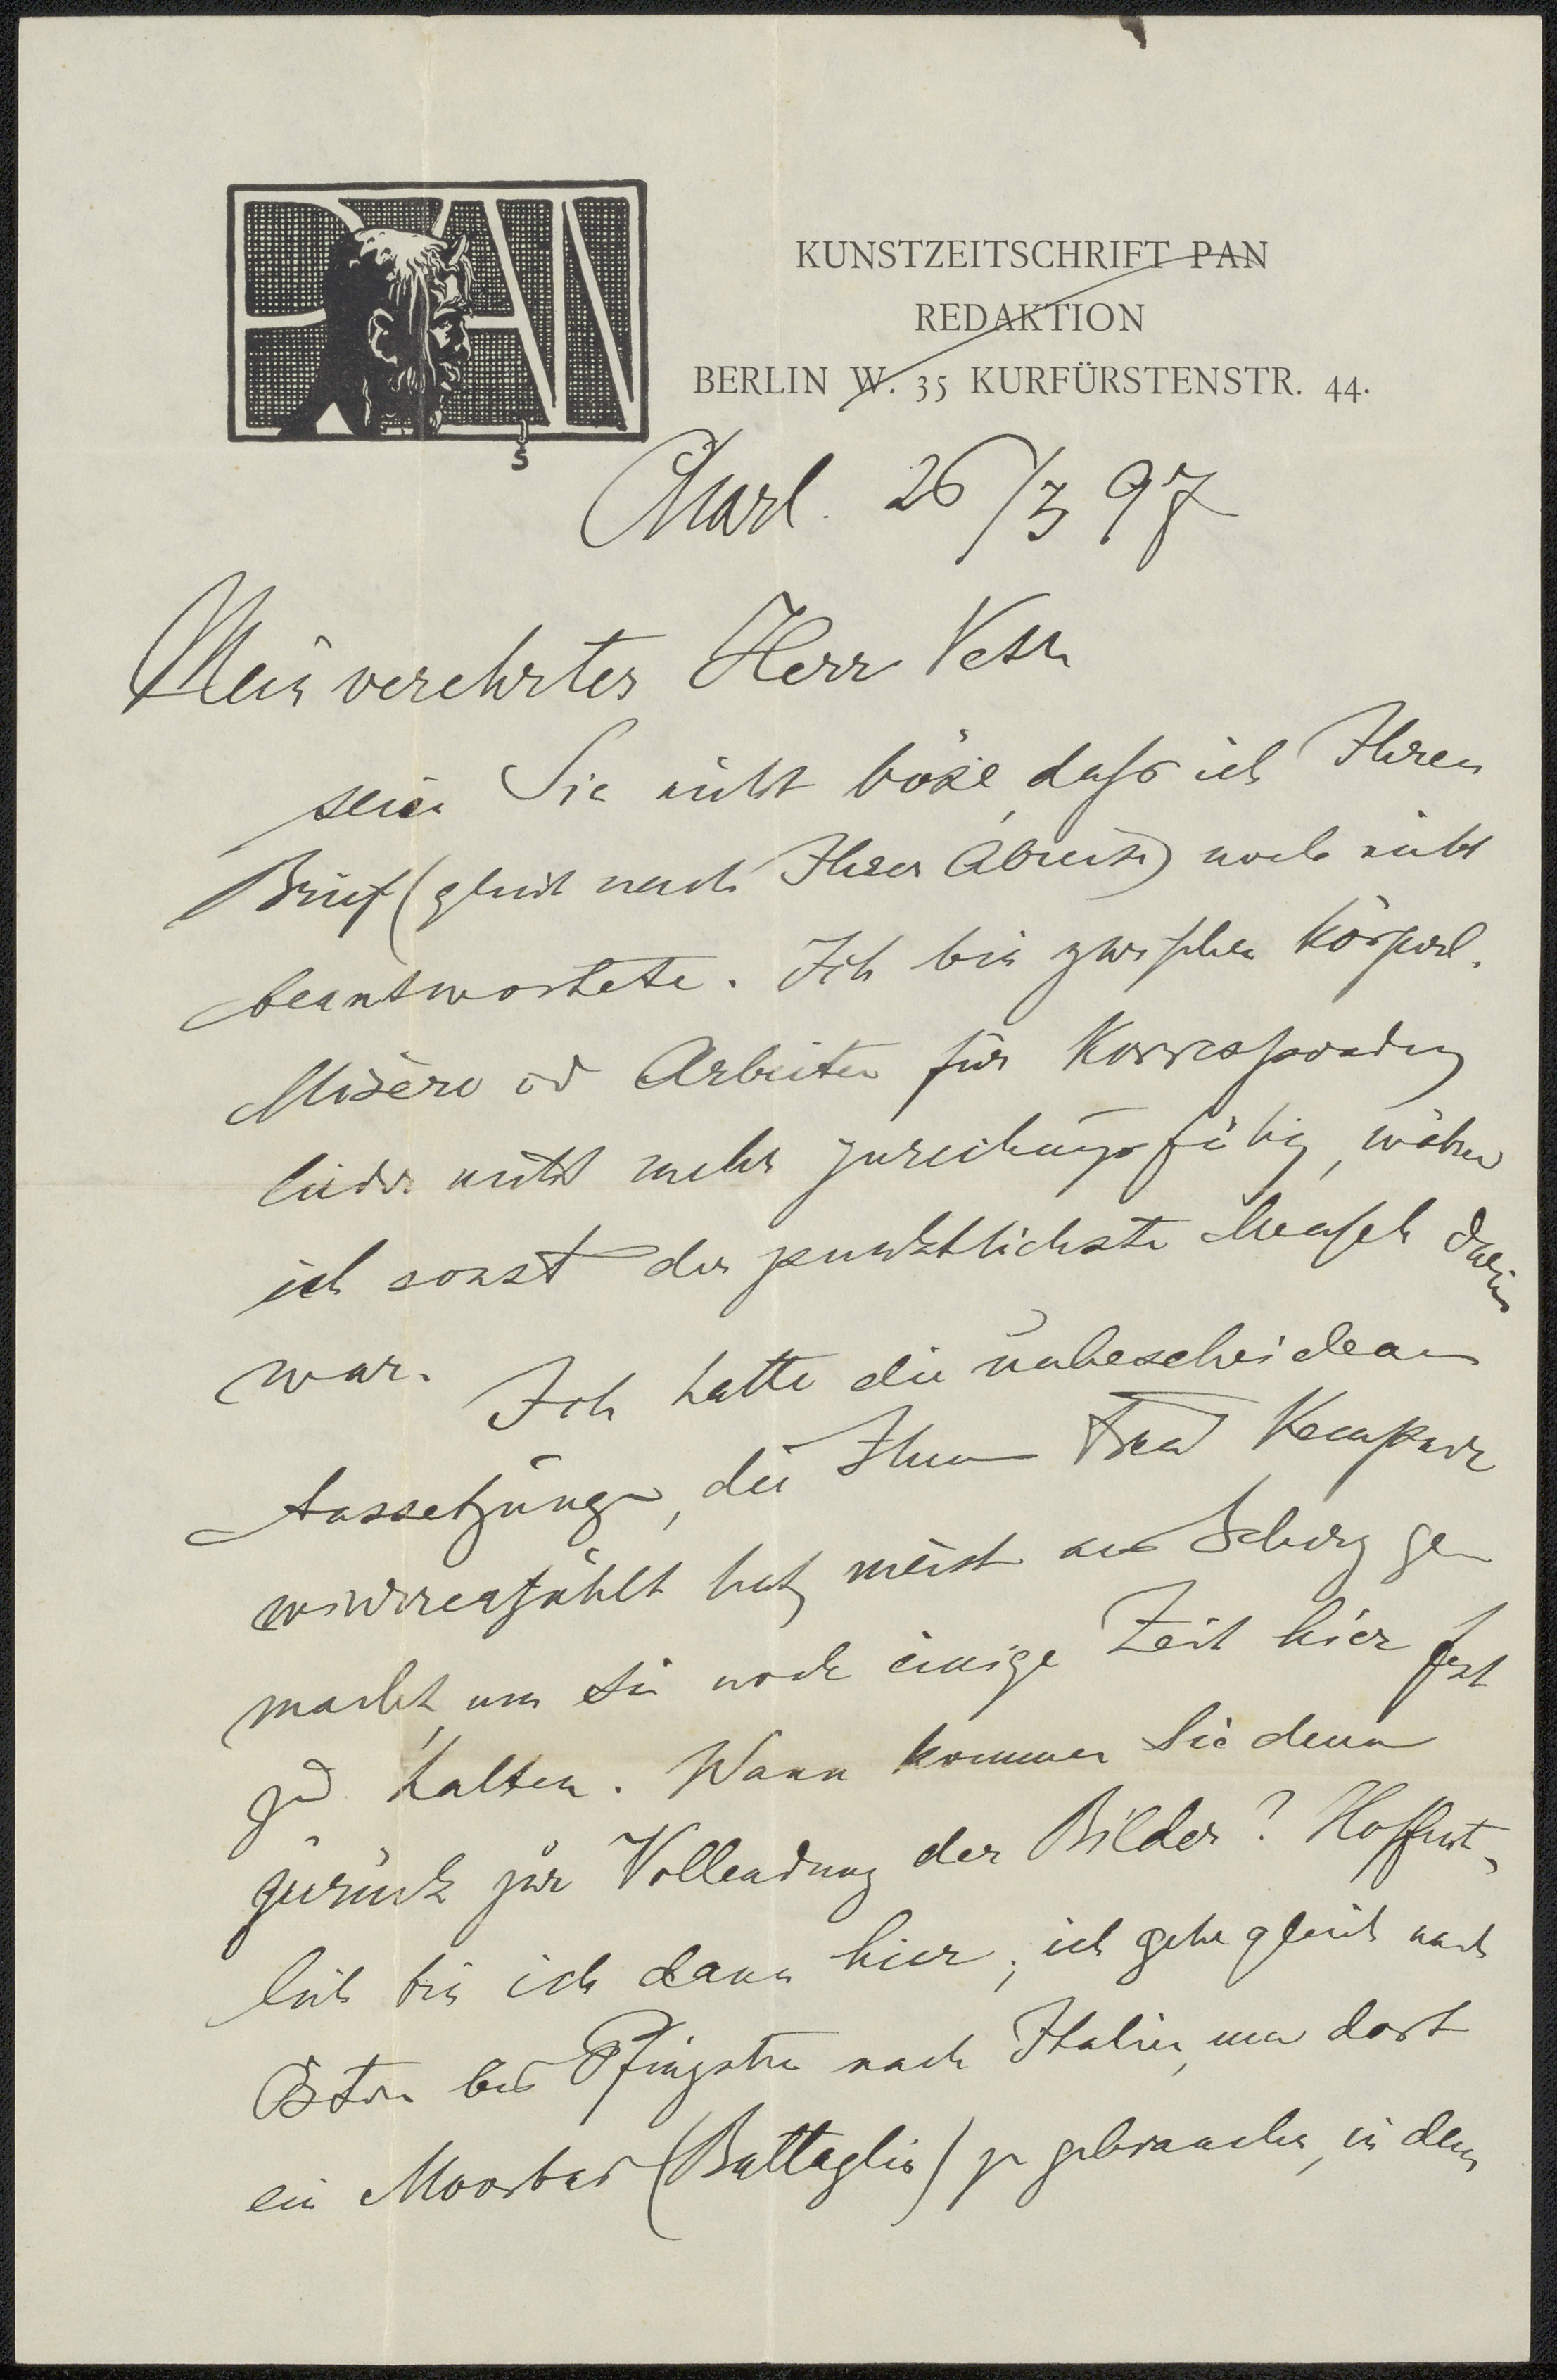 PAN
JS
KUNSTZEITSCHRIFT PAN
REDAKTION
BERLIN W. 35 KURFÜRSTENSTR. 44.
Charl. 26/3 97
Mein verehrter Herr Veth
seien Sie nicht böse, dass ich Ihren
Brief (gleich nach Ihrer Abreise) noch nicht
beantwortete. Ich bin zwischen körperl.
Misère und Arbeiten für Korrespondenz
leider nicht mehr zurechnungsfähig, während
ich sonst der punktlichste Mensch darin
war. Ich hatte die unbescheidenen
Aussetzungen, die Ihnen Frau
wiedererzählt hat, meist aus Scherz ge
macht, um Sie noch einige Zeit hier fest
zu halten. Wann kommen Sie denn
zurück zur Vollendung der Bilder? Hoffent-
lich bin ich dann hier; ich gehe gleich nach
Ostern bis Pfingsten nach Italien, um dort
ein Moorbad (Battaglia) zu gebrauchen, in dem